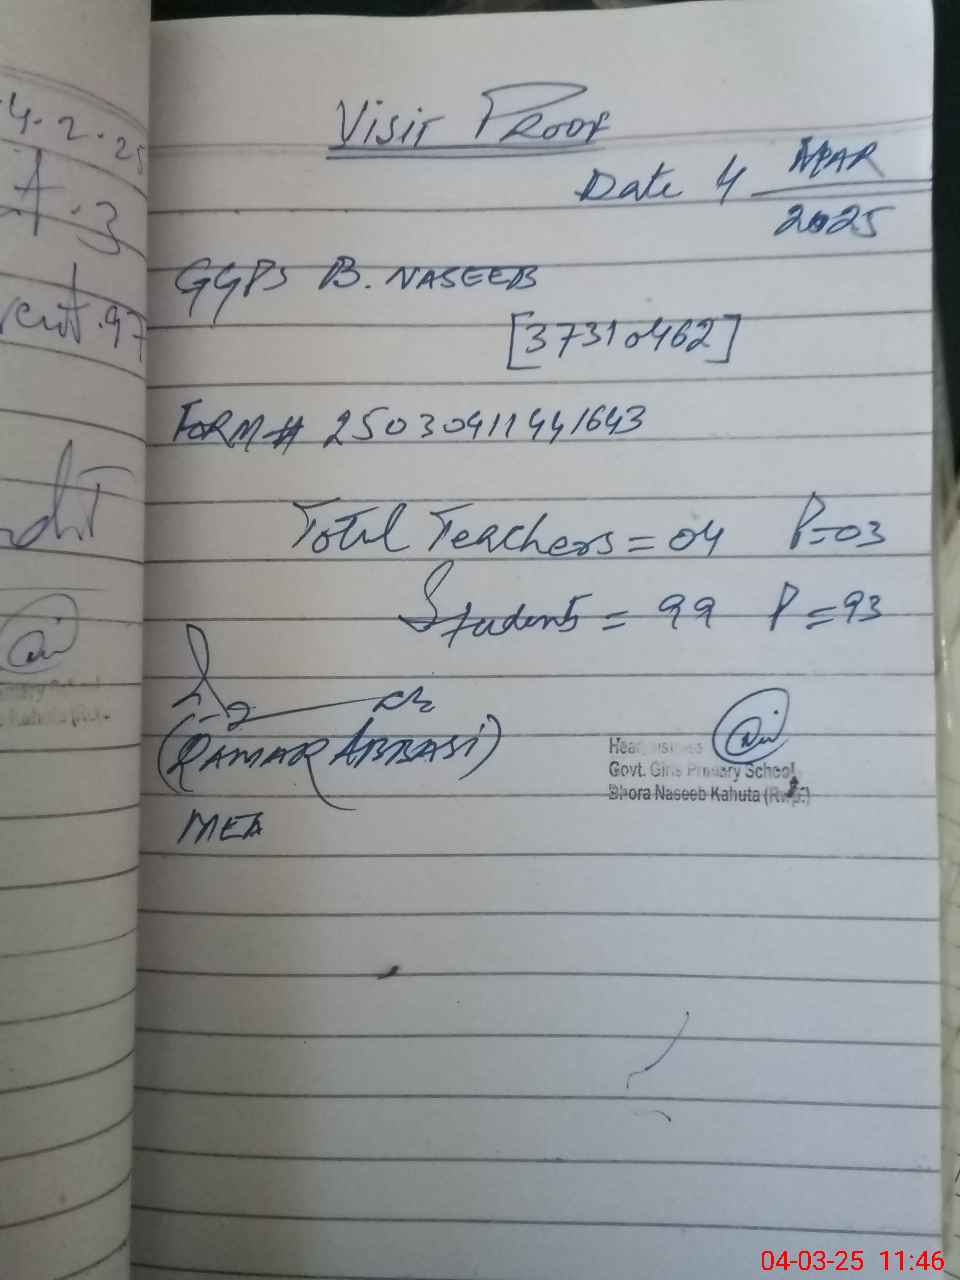 4.2.25
A.3
97
Visit Proof
Date 4 MAR
2025
GGPS B. NASEEB
[37310462]
FORM# 25030411441643
Total Teachers = 04 P=03
Students = 99 P=93
(QAMAR ABBASI)
MEA
Govt. Girls Primary School
Bhora Naseeb Kahuta (Rwp.)
04-03-25 11:46